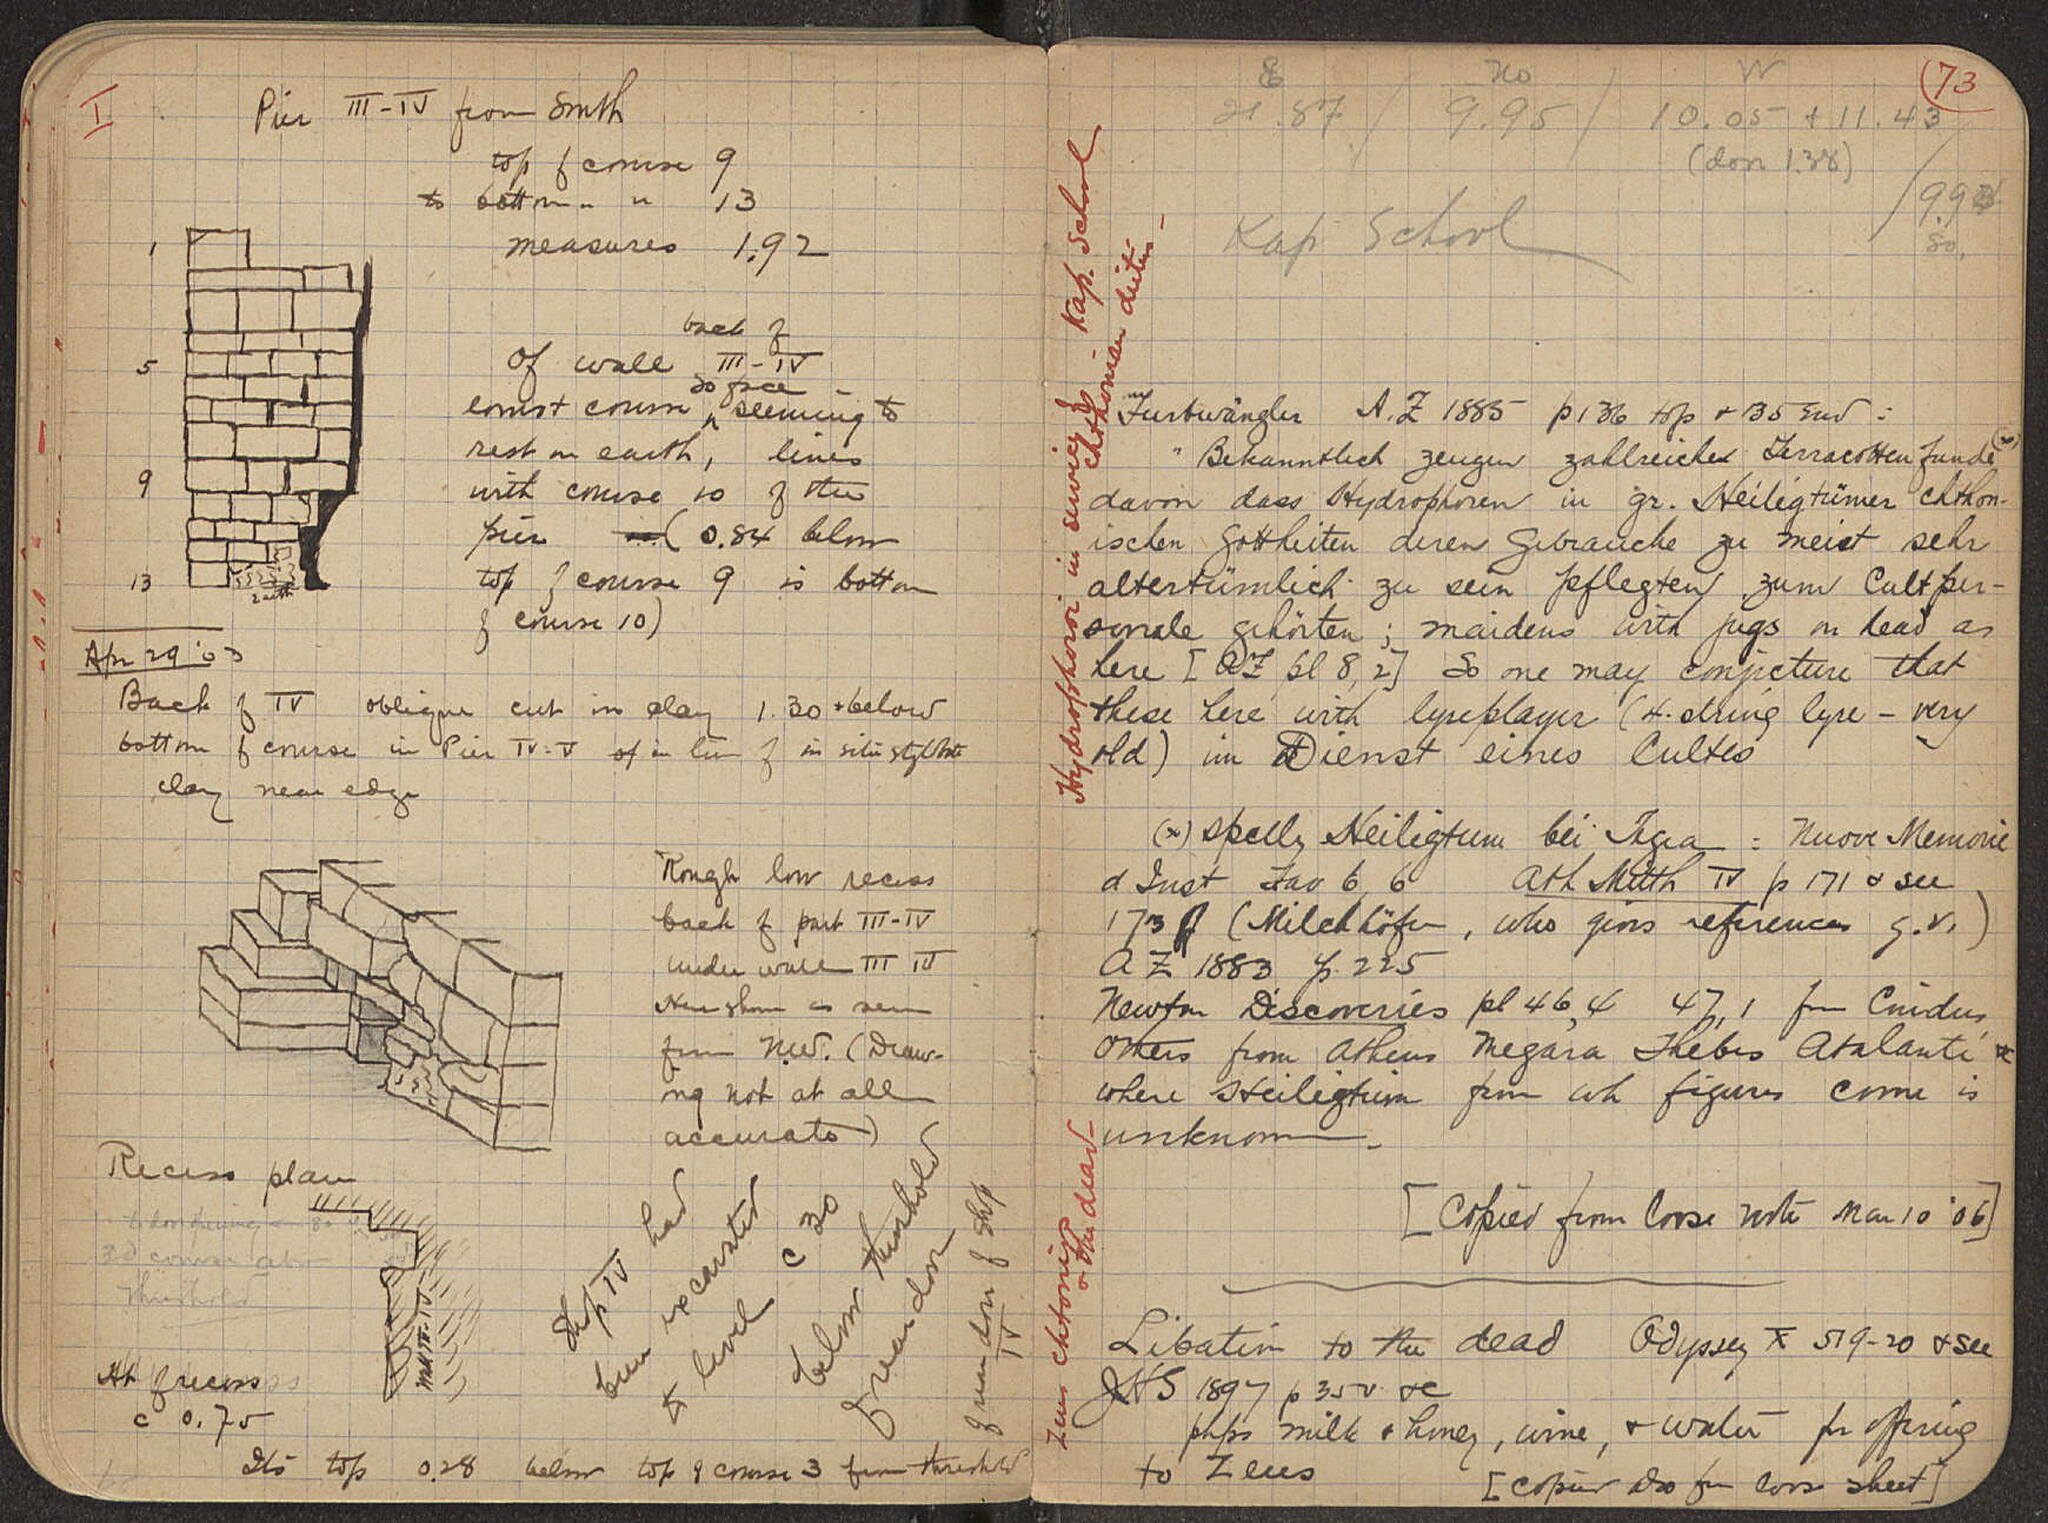 I
Pier III-IV from Smth
top of course 9
to bottom " " 13
measures 1.92
1
5
9
13
Earth
back of
Of wall III-IV
So face
lowest course seeming to
rest on earth, lines
with course 10 of the
pier (0.84 below
top of course 9 is bottom
of course 10)
Apr 29 '03
Back of IV oblique cut in clay 1.30 + below
bottom of course in Pier IV-V in line of in situ stylobate
clay near edge
Rough low recess
back of part III-IV
under wall III IV
Here shown as seen
from N.W. (Draw-
ing not at all
accurate)
Recess plan
3d course
threshold
wall III-IV
Ht of recess
c 0.75
Its top 0.28 below top of course 3 from threshold
Shop IV had
been excavated
to level c 30
below threshold
of rear door
of rear door of Shop
IV
73
E No W
21.87 / 9.95 / 10.05 + 11.43
(door 1.38)
/ 9.93
So.
Kap School
Hydrophoroi in service of Kap. School
chthonian deities -
Furtwängler A.Z 1885 p 136 top + 135 end :
" Bekanntlich zeugen zahlreiche Terracotten funde (x)
davon dass Hydrophoren in gr. Heiligtümer chthon-
ischen Gottheiten deren Gebrauche zu meist sehr
altertümlich zu sein pflegten zum Cult per-
sonale gehörten ; maidens with jugs on head as
here [AZ pl 8, 2] So one may conjecture that
these here with lyreplayer (4-string lyre - very
old) im Dienst eines Cultes
(x) spelly Heiligtum bei Tegea : Nuove Memorie
d Inst Tav 6, 6 Ath Mitth IV p 171 & see
173 ff (Milchhöfer, who gives references q.v.)
AZ 1883 p. 225
Newton Discoveries pl 46, 4 47, 1 from Cnidus,
others from Athens Megara Thebes Atalanti &c
where Heiligtum from wh figures come is
unknown.
[Copied from loose note Mar 10 '06]
Zeus chtonios
& the dead
Libation to the dead Odyssey X 519-20 & see
JHS 1897 p 35 &c
phps milk & honey, wine, & water for offering
to Zeus
[copied Do fm loose sheet]